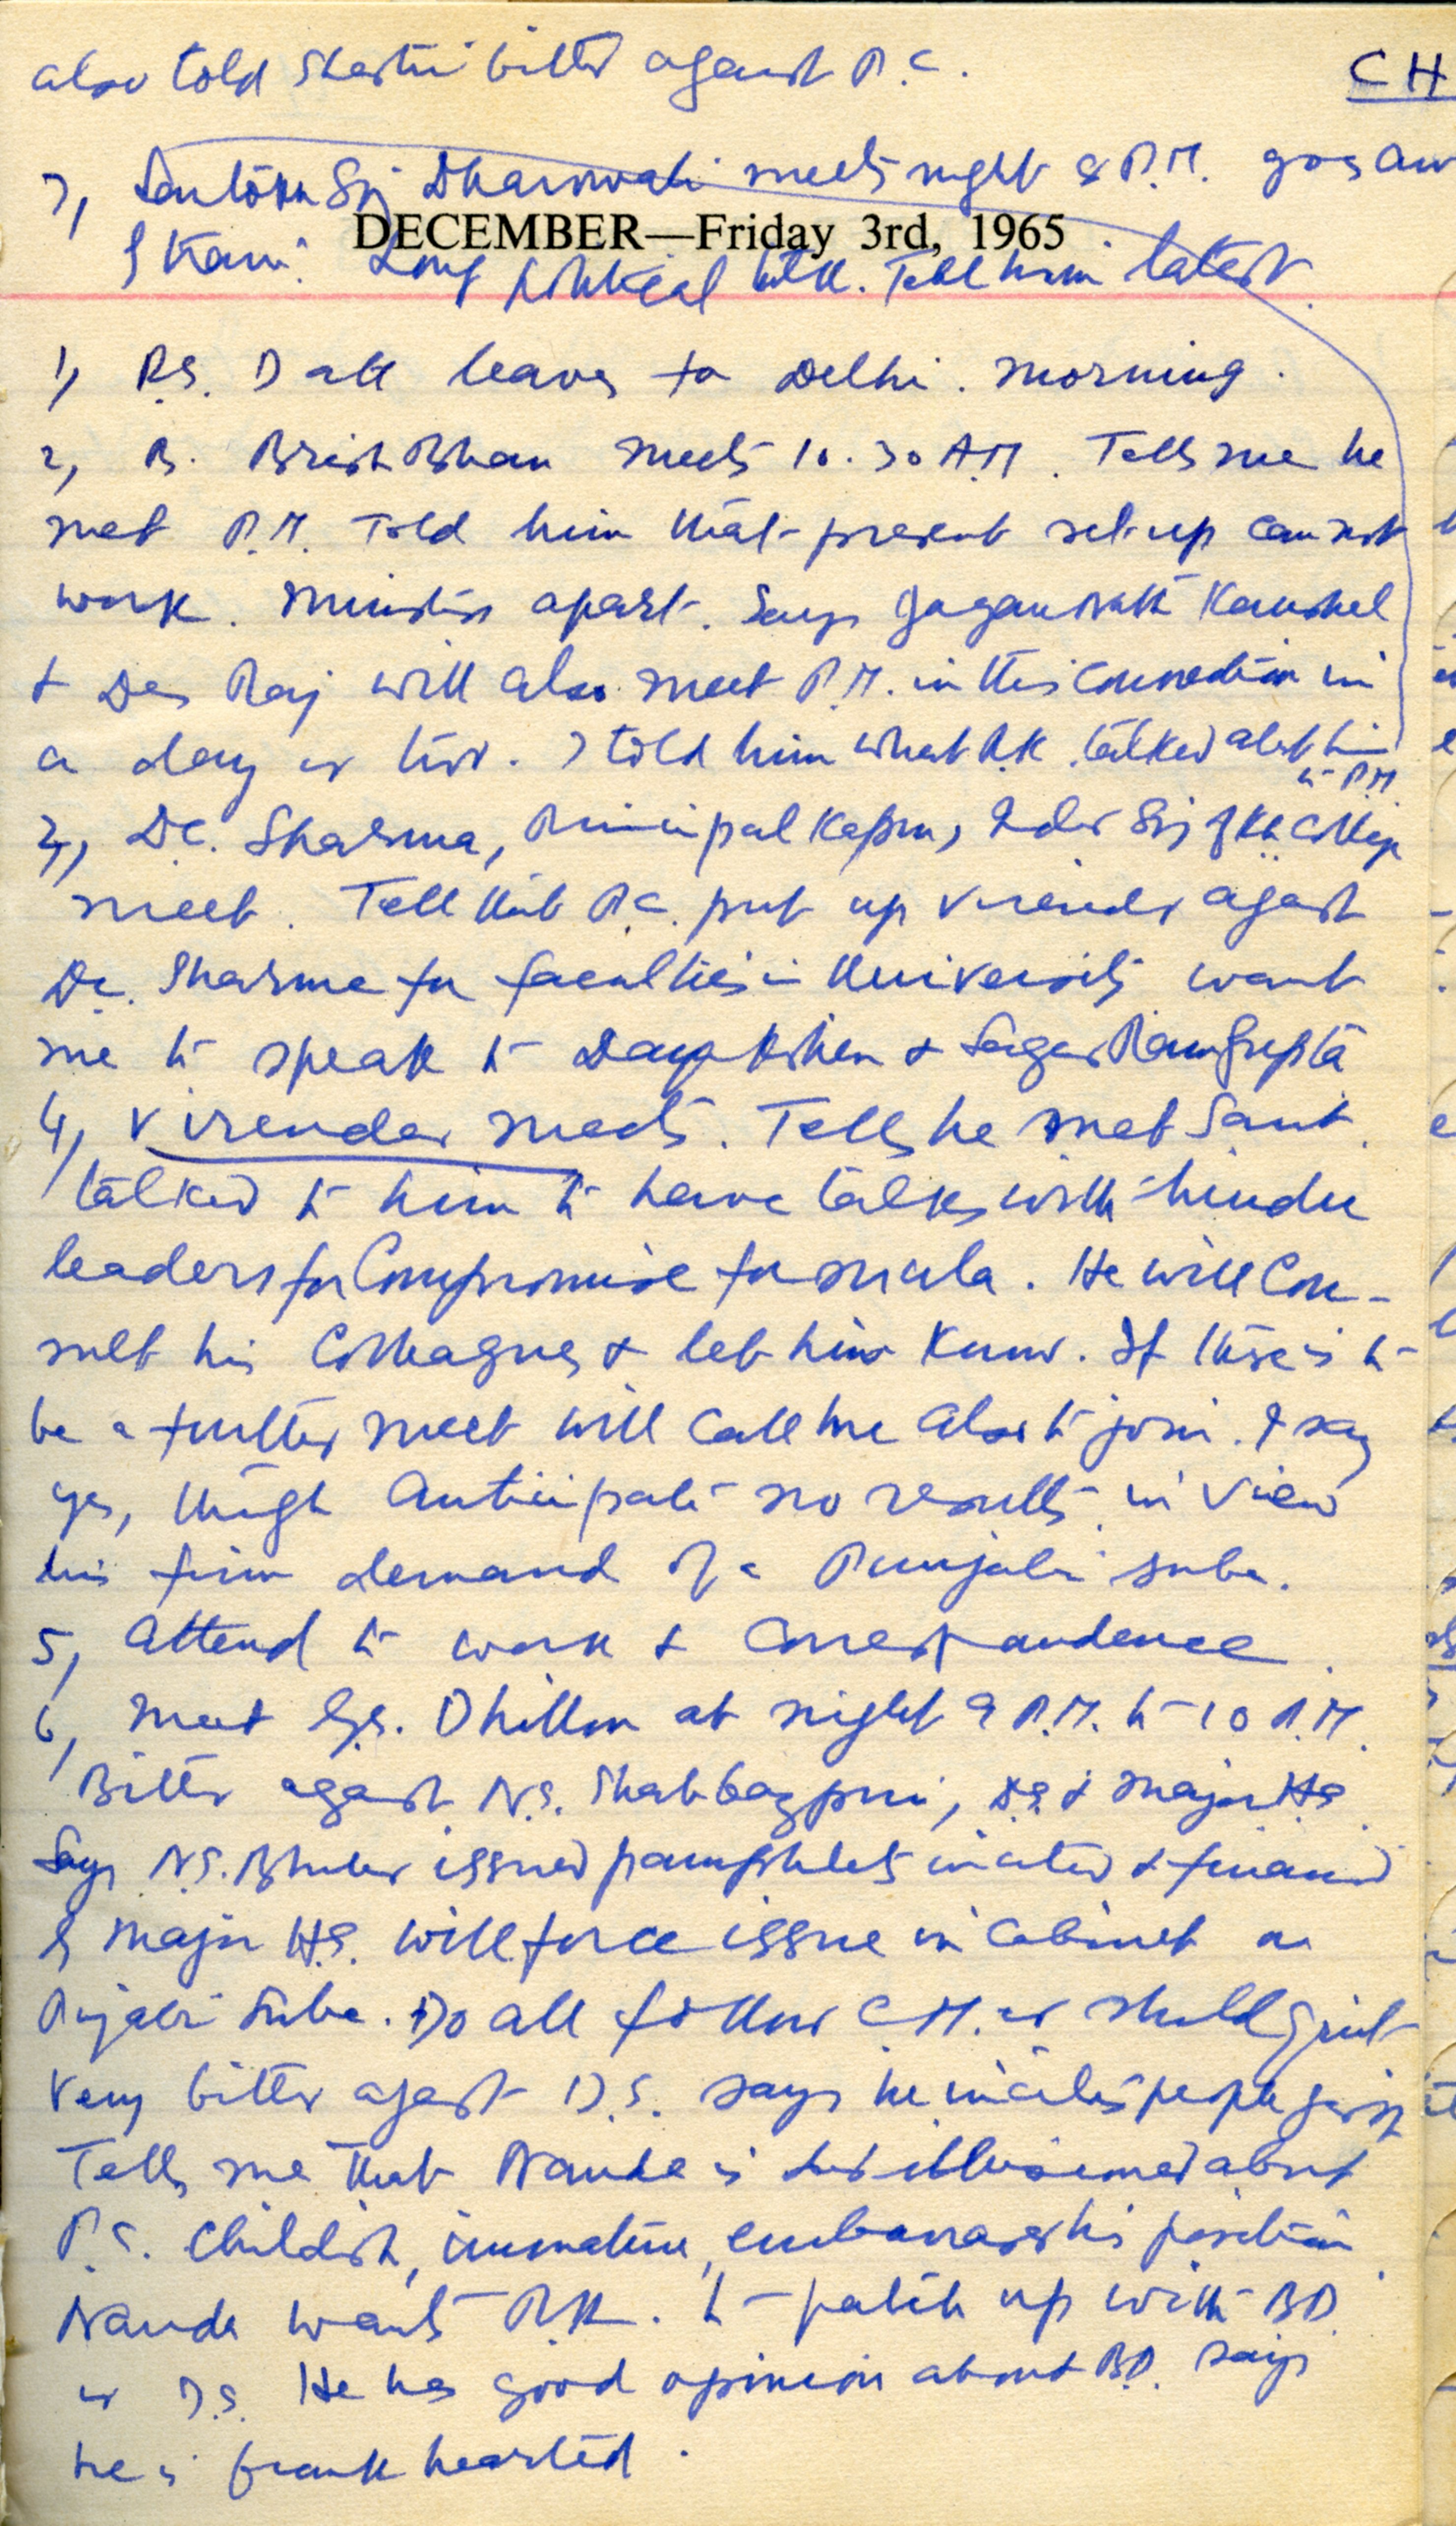 also told Shastri bitter against P.C.
CH
7, Santokh Sgj Dharmvati meets night 8 P.M. goes away
9 Kairi. Long political talk. Tell him latest.
DECEMBER—Friday 3rd, 1965
1, P.S. Datt leaves to Delhi. morning.
2, B. Brish Bhan meets 10.30 A.M. Tells me he
met P.M. Told him that present set-up can not
work. Ministers apart. Says Jagan Nath Kaushal
& Des Raj will also meet P.M. in this connection in
a day or two. I told him what R.K. talked abt him
to P.M.
3, D.C. Sharma, Principal Kapur, Inder Sgj of Kh. College
meet. Tell that P.C. put up Virender agast
D.C. Sharma for faculties in University want
me to speak to Daya Kishen & Sagar Ram Gupta
4, Virender meets. Tells he met Sant.
talked to him to have talks with hindu
leaders for Compromise formula. He will Con-
sult his Colleagues & let him know. If there is to
be a further meet will call me also to join. I say
yes, though anticipate no results in view
his firm demand of a Punjabi suba.
5, Attend to work & Correspondence.
6, Meet G.S. Dhillon at night 9 P.M. to 10 P.M.
Bitter agast N.S. Shahbazpuri, D.S. & Major H.S.
Says N.S. Bhuler issued pamphlets incited & financed
by Major H.S. will force issue in Cabinet on
Pujabi Suba. Do all follow C.M. or should quit
Very bitter agast D.S. says he incites people
Tells me that Nanda is disillusioned about
P.C. Childish, immature, embarrass his position.
Nanda wants R.K. to patch up with B.D.
or D.S. He has good opinion about B.D. says
he is frank hearted.